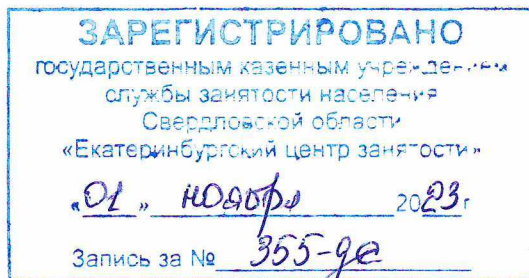 ЗАРЕГИСТРИРОВАНО
государственным казенным учреждением
службы занятости населения
Свердловской области
«Екатеринбургский центр занятости»
«01» ноября 2023г
Запись за № 355-дс